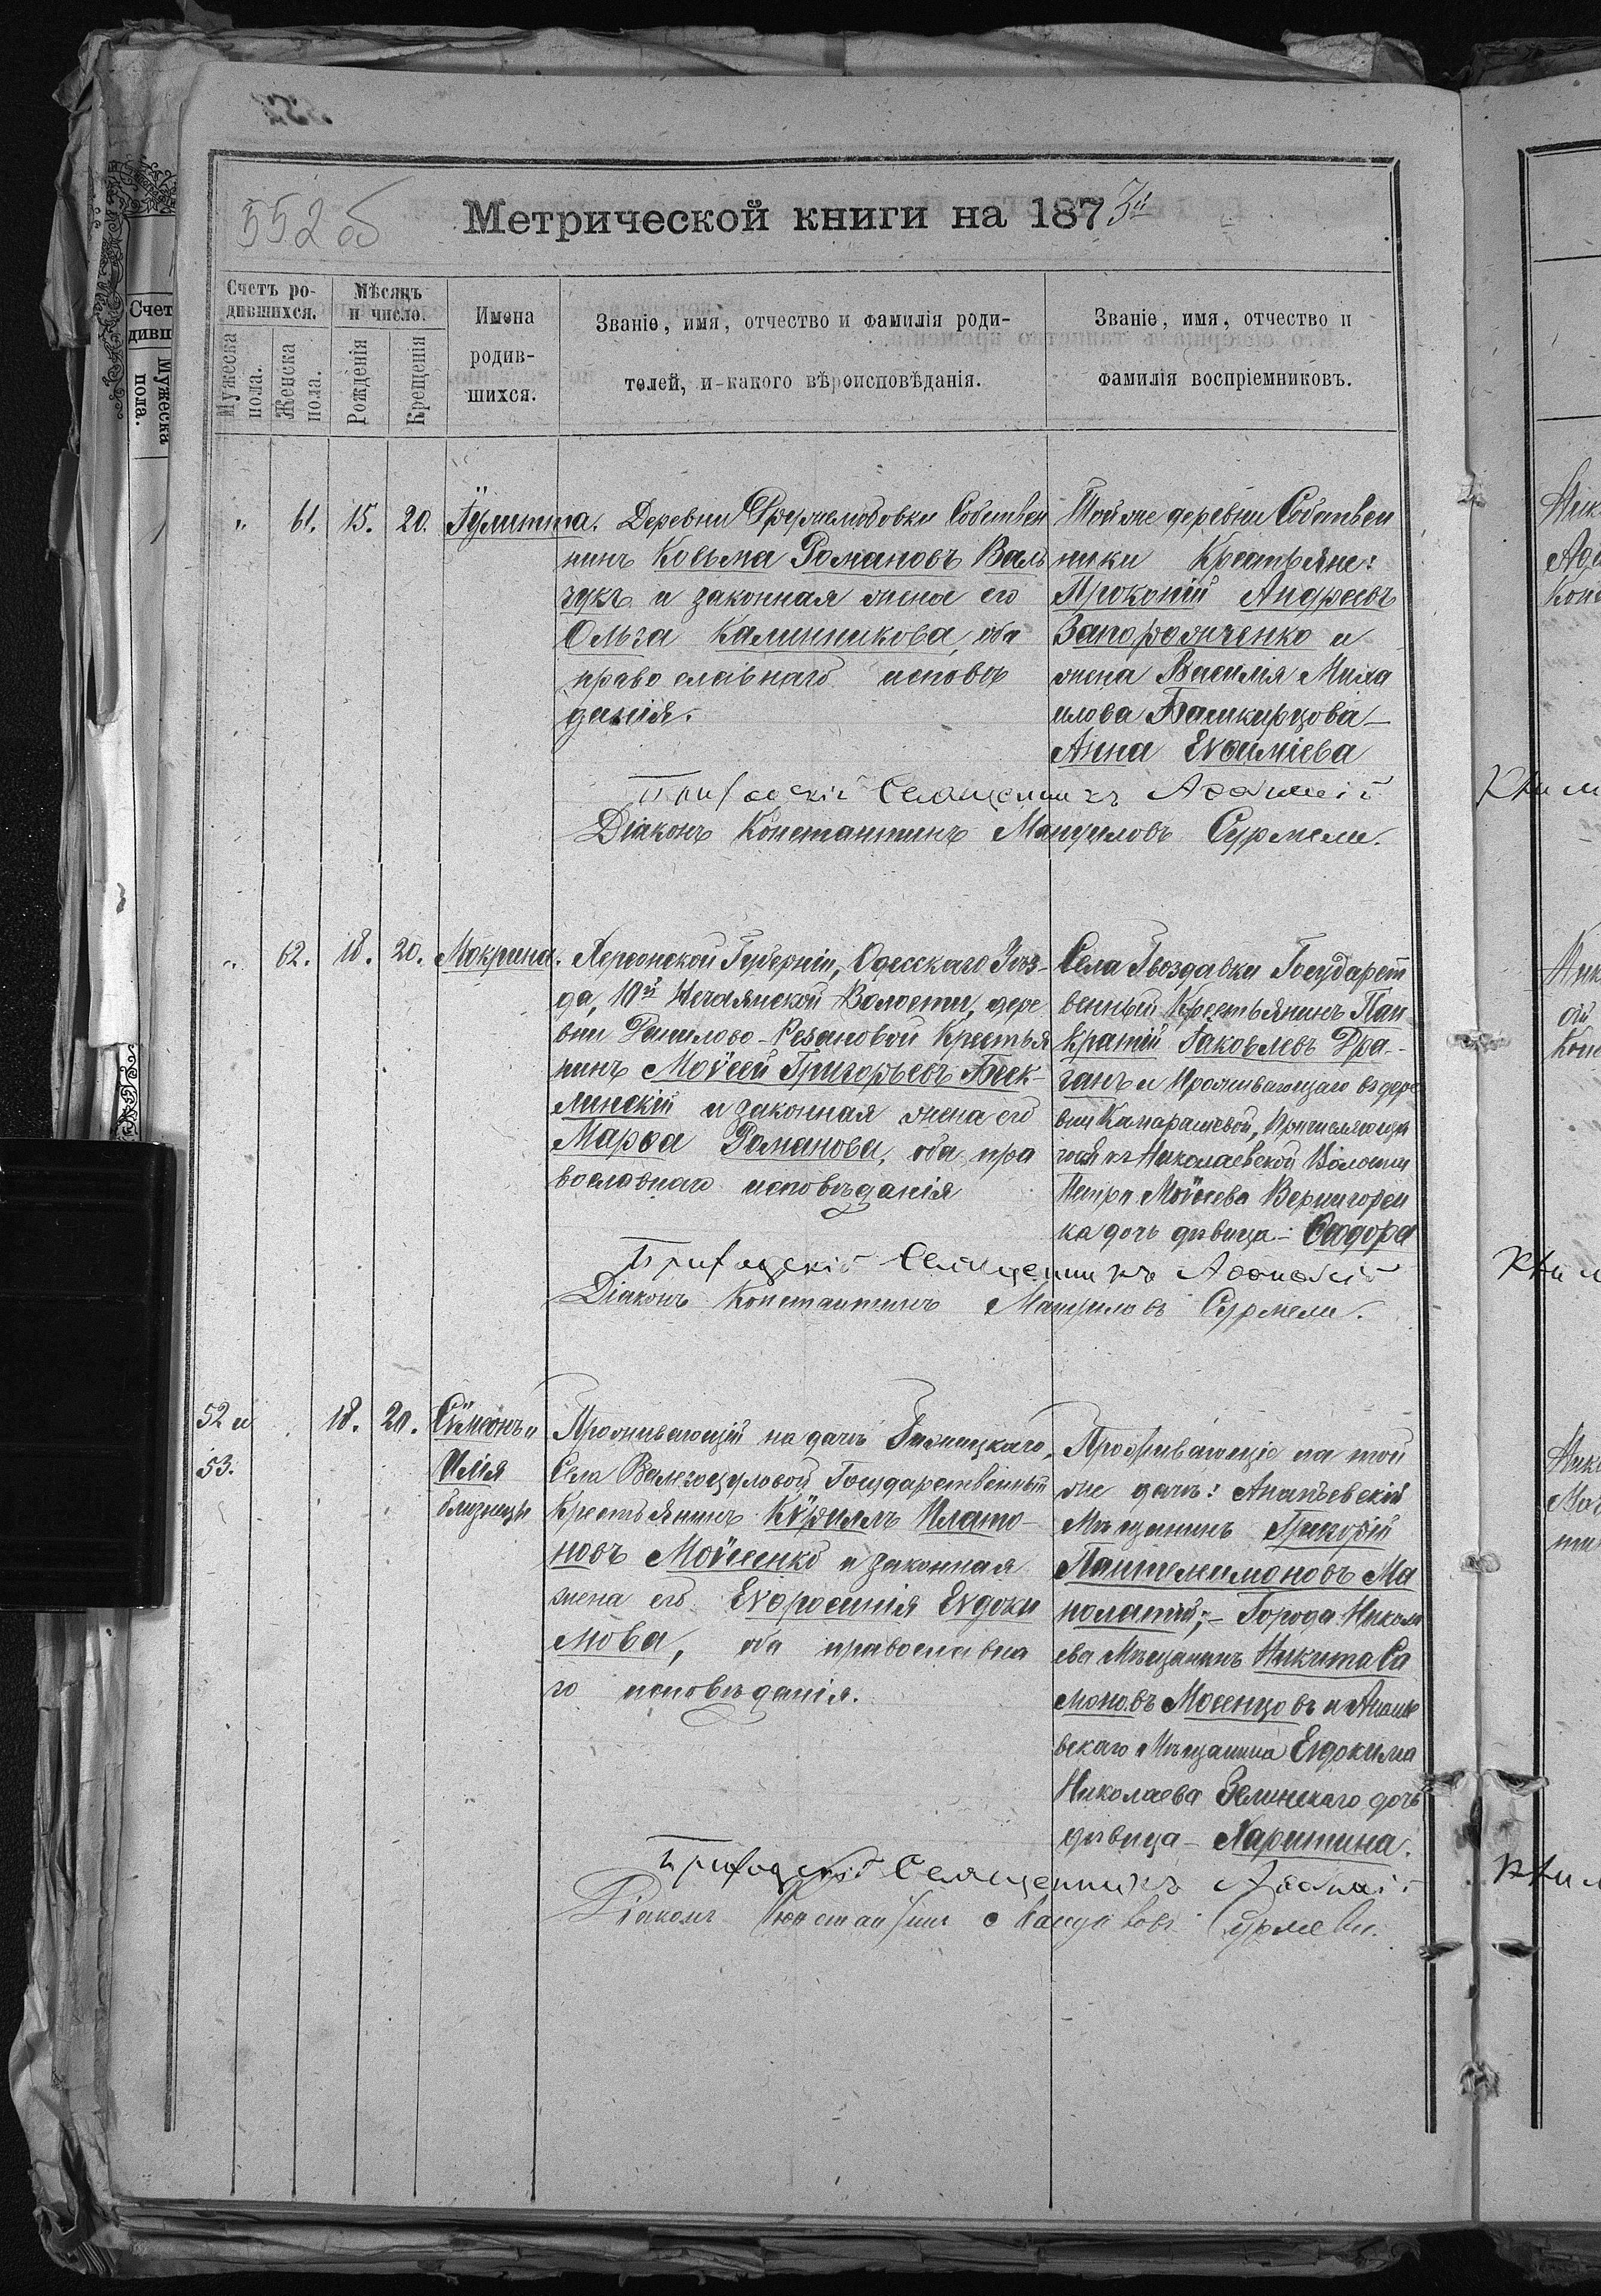 552 об
Метрической книги на 1873й
Счетъ ро-
дившихся.
Мужеска пола.
Женска пола.
Мѣсяцъ
и число.
Рожденія
Крещенія
Имена
родив-
шихся.
Званіе, имя, отчество и фамилія роди-
телей, и какого вѣроисповѣданія.
Званіе, имя, отчество и
фамилія воспріемниковъ.
" 61. 15. 20. Іулитта.
Деревни Собствен
никъ Косьма Романовъ Валь
чукъ и законная жена его
Ольга Калинникова, оба
православнаго исповѣ
данія.
Той же деревни Собствен
ники Крестьяне:
Прокопій Андреевъ
Запорожченко и
жена Василія Миха
илова Башкирцова –
Анна Евѳиміева
Приходскій Священникъ
Діаконъ Константинъ Мануиловъ Сурмели.
" 62. 18. 20. Мокрина.
Херсонской Губерніи, Одесскаго Уѣз-
да, 10й Нечаянской Волости, дере
вни Данилово-Резановой Крестья
нинъ Мойсей Григорьевъ
и законная жена его
Марѳа Романова, оба пра
вославнаго исповѣданія
Села Гвоздавки Государст
венный Крестьянинъ Пан
кратій Іаковлевъ Дра-
ганъ и Проживающаго въ дере
вни Камарашевой,
Николаевской Волости
Петра Мойсеева
ка дочь дѣвица – Ѳеодора
Приходскій Священникъ
Діаконъ Константинъ Мануиловъ Сурмели.
52 и 18. 20. Сѵмеонъ и
53. Илія
близнецы
Проживающій на дачѣ
Села Валегоцуловой Государственный
Крестьянинъ Кѵриллъ Плато-
новъ Мойсенко и законная
жена его Евфросинія Евдоки
мова, оба православна
го исповѣданія.
Проживающіе на той
же дачѣ: Ананьевскій
Мѣщанинъ Григорій
Пантелеимоновъ Ма
нолатій; – Города Никола
ева Мѣщанинъ Никита Са
моновъ Мосенцовъ и Ананье
вскаго Мѣщанина Евдокима
Николаева Зелинскаго дочь
дѣвица – Харитина.
Приходскій Священникъ
Діаконъ Константинъ Мануиловъ Сурмели.